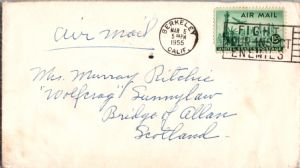 air mail
BERKELEY
MAR 5
5 PM
1955
CALIF.
AIR MAIL
15¢
FIGHT
ENEMIES
Mrs. Murray Ritchie
"Wolfcrag" Sunnylaw
Bridge of Allan
Scotland